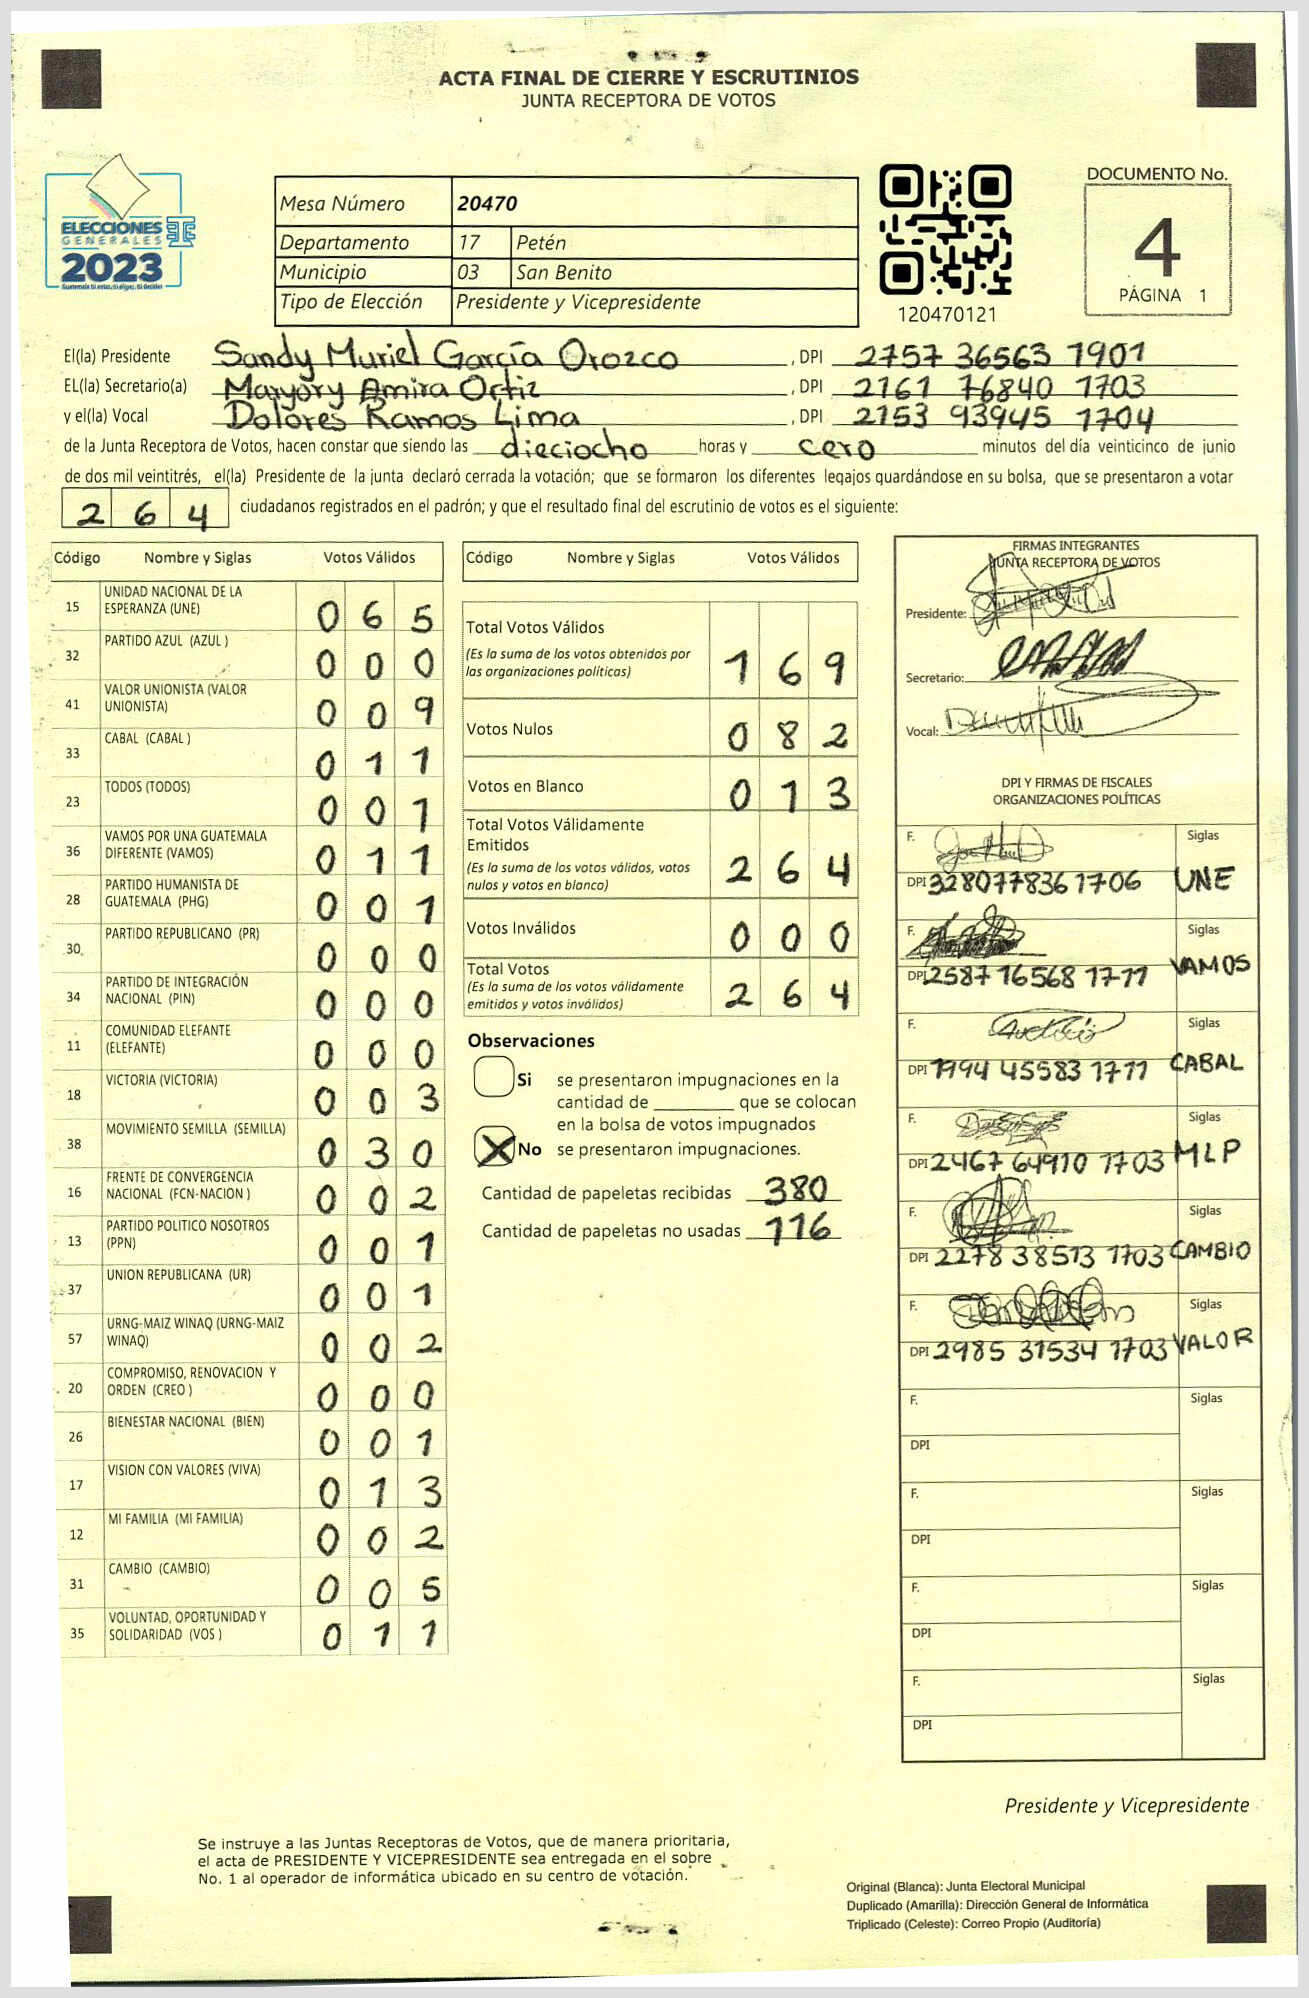 ACTA FINAL DE CIERRE Y ESCRUTINIOS
JUNTA RECEPTORA DE VOTOS
ELECCIONES
GENERALES
2023
Guatemala tú eres, tú eliges, tú decides
Mesa Número 20470
Departamento 17 Petén
Municipio 03 San Benito
Tipo de Elección Presidente y Vicepresidente
120470121
DOCUMENTO No.
4
PÁGINA 1
El(la) Presidente Sandy Muriel García Orozco , DPI 2757 36563 1901
EL(la) Secretario(a) Maryory Amira Ortiz , DPI 2161 76840 1703
y el(la) Vocal Dolores Ramos Lima , DPI 2153 93945 1704
de la Junta Receptora de Votos, hacen constar que siendo las dieciocho horas y cero minutos del día veinticinco de junio
de dos mil veintitrés, el(la) Presidente de la junta declaró cerrada la votación; que se formaron los diferentes legajos guardándose en su bolsa, que se presentaron a votar
264 ciudadanos registrados en el padrón; y que el resultado final del escrutinio de votos es el siguiente:
Código Nombre y Siglas Votos Válidos
15 UNIDAD NACIONAL DE LA
ESPERANZA (UNE) 065
32 PARTIDO AZUL (AZUL ) 000
41 VALOR UNIONISTA (VALOR
UNIONISTA) 009
33 CABAL (CABAL ) 011
23 TODOS (TODOS) 001
36 VAMOS POR UNA GUATEMALA
DIFERENTE (VAMOS) 011
28 PARTIDO HUMANISTA DE
GUATEMALA (PHG) 001
30 PARTIDO REPUBLICANO (PR) 000
34 PARTIDO DE INTEGRACIÓN
NACIONAL (PIN) 000
11 COMUNIDAD ELEFANTE
(ELEFANTE) 000
18 VICTORIA (VICTORIA) 003
38 MOVIMIENTO SEMILLA (SEMILLA) 030
16 FRENTE DE CONVERGENCIA
NACIONAL (FCN-NACION ) 002
13 PARTIDO POLITICO NOSOTROS
(PPN) 001
37 UNION REPUBLICANA (UR) 001
57 URNG-MAIZ WINAQ (URNG-MAIZ
WINAQ) 002
20 COMPROMISO, RENOVACION Y
ORDEN (CREO ) 000
26 BIENESTAR NACIONAL (BIEN) 001
17 VISION CON VALORES (VIVA) 013
12 MI FAMILIA (MI FAMILIA) 002
31 CAMBIO (CAMBIO) 005
35 VOLUNTAD, OPORTUNIDAD Y
SOLIDARIDAD (VOS ) 011
Código Nombre y Siglas Votos Válidos
Total Votos Válidos
(Es la suma de los votos obtenidos por
las organizaciones políticas) 169
Votos Nulos 082
Votos en Blanco 013
Total Votos Válidamente
Emitidos
(Es la suma de los votos válidos, votos
nulos y votos en blanco) 264
Votos Inválidos 000
Total Votos
(Es la suma de los votos válidamente
emitidos y votos inválidos) 264
Observaciones
Si se presentaron impugnaciones en la
cantidad de ________ que se colocan
en la bolsa de votos impugnados
X No se presentaron impugnaciones.
Cantidad de papeletas recibidas 380
Cantidad de papeletas no usadas 116
FIRMAS INTEGRANTES
JUNTA RECEPTORA DE VOTOS
Presidente:
Secretario:
Vocal:
DPI Y FIRMAS DE FISCALES
ORGANIZACIONES POLÍTICAS
F. Siglas
DPI 3280778361706 UNE
F. Siglas
DPI 2587 16568 1711 VAMOS
F. Siglas
DPI 1994 45583 1711 CABAL
F. Siglas
DPI 2467 64910 1703 MLP
F. Siglas
DPI 2278 38513 1703 CAMBIO
F. Siglas
DPI 2985 31534 1703 VALOR
F. Siglas
DPI
F. Siglas
DPI
F. Siglas
DPI
F. Siglas
DPI
Presidente y Vicepresidente
Se instruye a las Juntas Receptoras de Votos, que de manera prioritaria,
el acta de PRESIDENTE Y VICEPRESIDENTE sea entregada en el sobre
No. 1 al operador de informática ubicado en su centro de votación.
Original (Blanca): Junta Electoral Municipal
Duplicado (Amarilla): Dirección General de Informática
Triplicado (Celeste): Correo Propio (Auditoría)